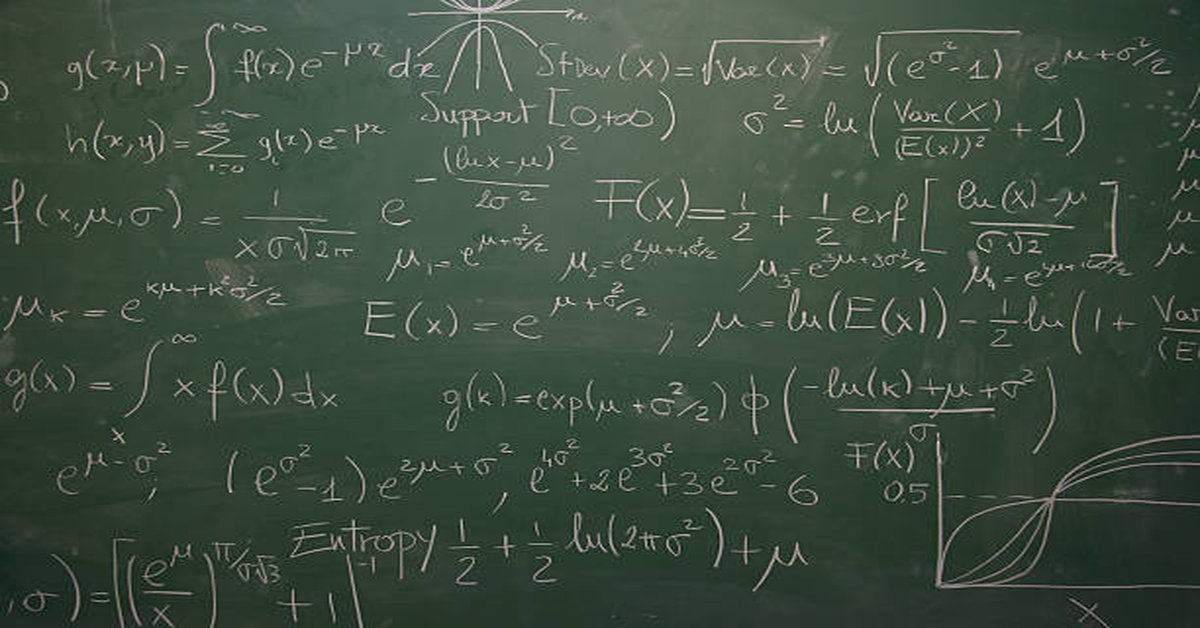 g(x,μ) = ∫_{-∞}^{∞} f(x) e^{-μx} dx
StDev(X) = √Var(x) = √(e^{σ²}-1) e^{μ+σ²/2}
Support [0,+∞)
σ² = ln(Var(X)/(E(x))² + 1)
h(x,y) = Σ_{i=0}^{∞} g(x) e^{-μx}
f(x,μ,σ) = 1/(xσ√2π) e^{-(lnx-μ)²/2σ²}
F(x) = 1/2 + 1/2 erf[(ln(x)-μ)/(σ√2)]
μ₁ = e^{μ+σ²/2} μ₂ = e^{2μ+4σ²/2} μ₃ = e^{3μ+9σ²/2}
μ_K = e^{Kμ+K²σ²/2}
E(x) = e^{μ+σ²/2} ; μ = ln(E(x)) - 1/2 ln(1+ Var
(E
g(x) = ∫_x^∞ x f(x) dx
g(k) = exp(μ+σ²/2) ϕ((-ln(k)+μ+σ²)/σ)
e^{μ-σ²} ; (e^{σ²}-1) e^{2μ+σ²} , e^{4σ²}+2e^{3σ²}+3e^{2σ²}-6
F(x)
0.5
Entropy 1/2 + 1/2 ln(2πσ²) + μ
,σ) = [(e^μ/x)^{π/σ√3} + 1]^{-1}
x